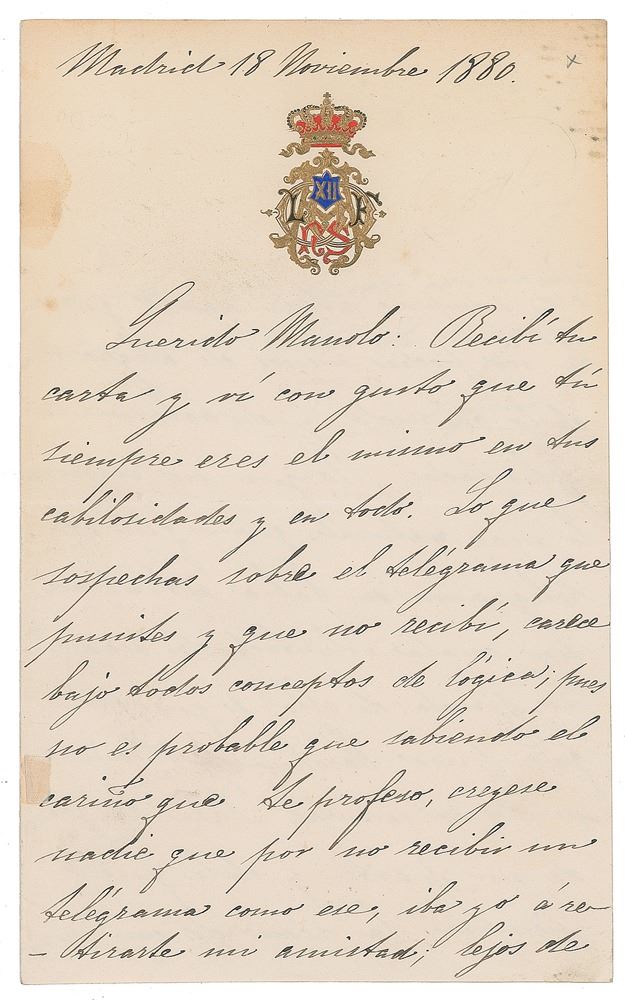 Madrid 18 Noviembre 1880.
XII
L F
Querido Manolo: Recibí tu
carta y ví con gusto que tú
siempre eres el mismo en tus
cabilosidades y en todo. Lo que
sospechas sobre el telégrama que
pusistes y que no recibí, carece
bajo todos conceptos de lógica; pues
no es probable que sabiendo el
cariño que te profeso, creyese
nadie que por no recibir un
telégrama como ese, iba yo á re-
-tirarte mi amistad; lejos de